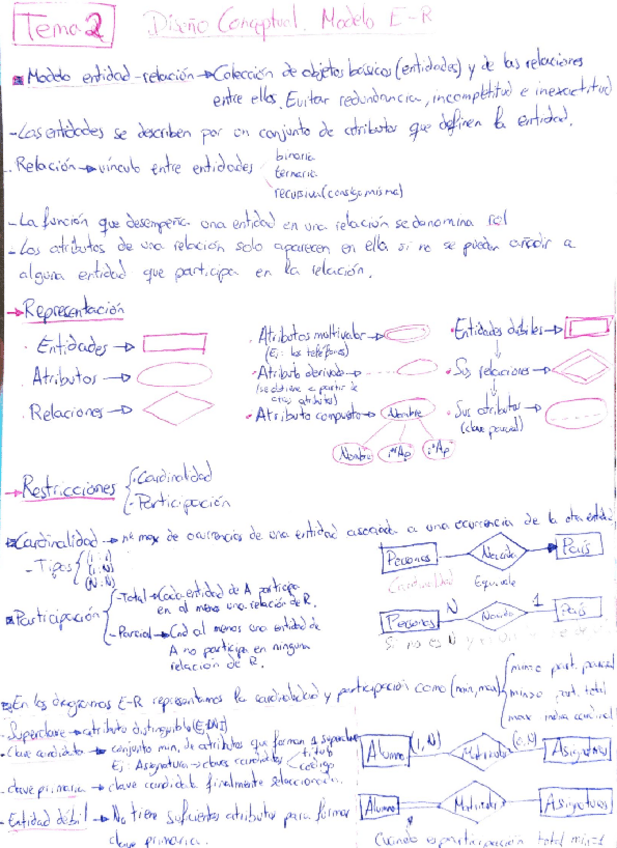 Tema 2 Diseño Conceptual. Modelo E-R
Modelo entidad-relación → Colección de objetos básicos (entidades) y de las relaciones
entre ellos. Evitar redundancia, incompletitud e inexactitud
- Las entidades se describen por un conjunto de atributos que definen la entidad.
Relación → vínculo entre entidades
binaria
ternaria
recursiva (consigo misma)
- La función que desempeña una entidad en una relación se denomina rol
- Los atributos de una relación solo aparecen en ella si no se pueden añadir a
alguna entidad que participa en la relación.
→ Representación
· Entidades →
· Atributos →
· Relaciones →
· Atributos multivalor →
(Ej: los teléfonos)
· Atributo derivado →
(se obtiene a partir de
otros atributos)
· Atributo compuesto → Nombre
Nombre 1er Ap 2º Ap
· Entidades débiles →
· Sus relaciones →
· Sus atributos →
(clave parcial)
→ Restricciones { · Cardinalidad
- Participación
Cardinalidad → nº max de ocurrencias de una entidad asociada a una ocurrencia de la otra entidad
- Tipos { (1:1)
(1:N)
(N:N)
Personas Nacido País
Cardinalidad Equivale
Personas N Nacido 1 País
Si no es N y
Participación { - Total → Cada entidad de A participa
en al menos una relación de R.
- Parcial → Cnd al menos una entidad de
A no participa en ninguna
relación de R.
En los diagramas E-R representamos la cardinalidad y participación como (min, max)
min=0 part. parcial
min>0 part. total
max indica cardinal
- Superclave → atributo distinguible
- Clave candidata → conjunto min. de atributos que forman 1 superclave
Ej: Asignatura → claves candidatas { título
código
- clave primaria → clave candidata finalmente seleccionada.
- Entidad débil → No tiene suficientes atributos para formar
clave primaria.
Alumno (1,N) Matricula (0,N) Asignaturas
Alumno Matricula Asignaturas
Cuando es participación total min=1